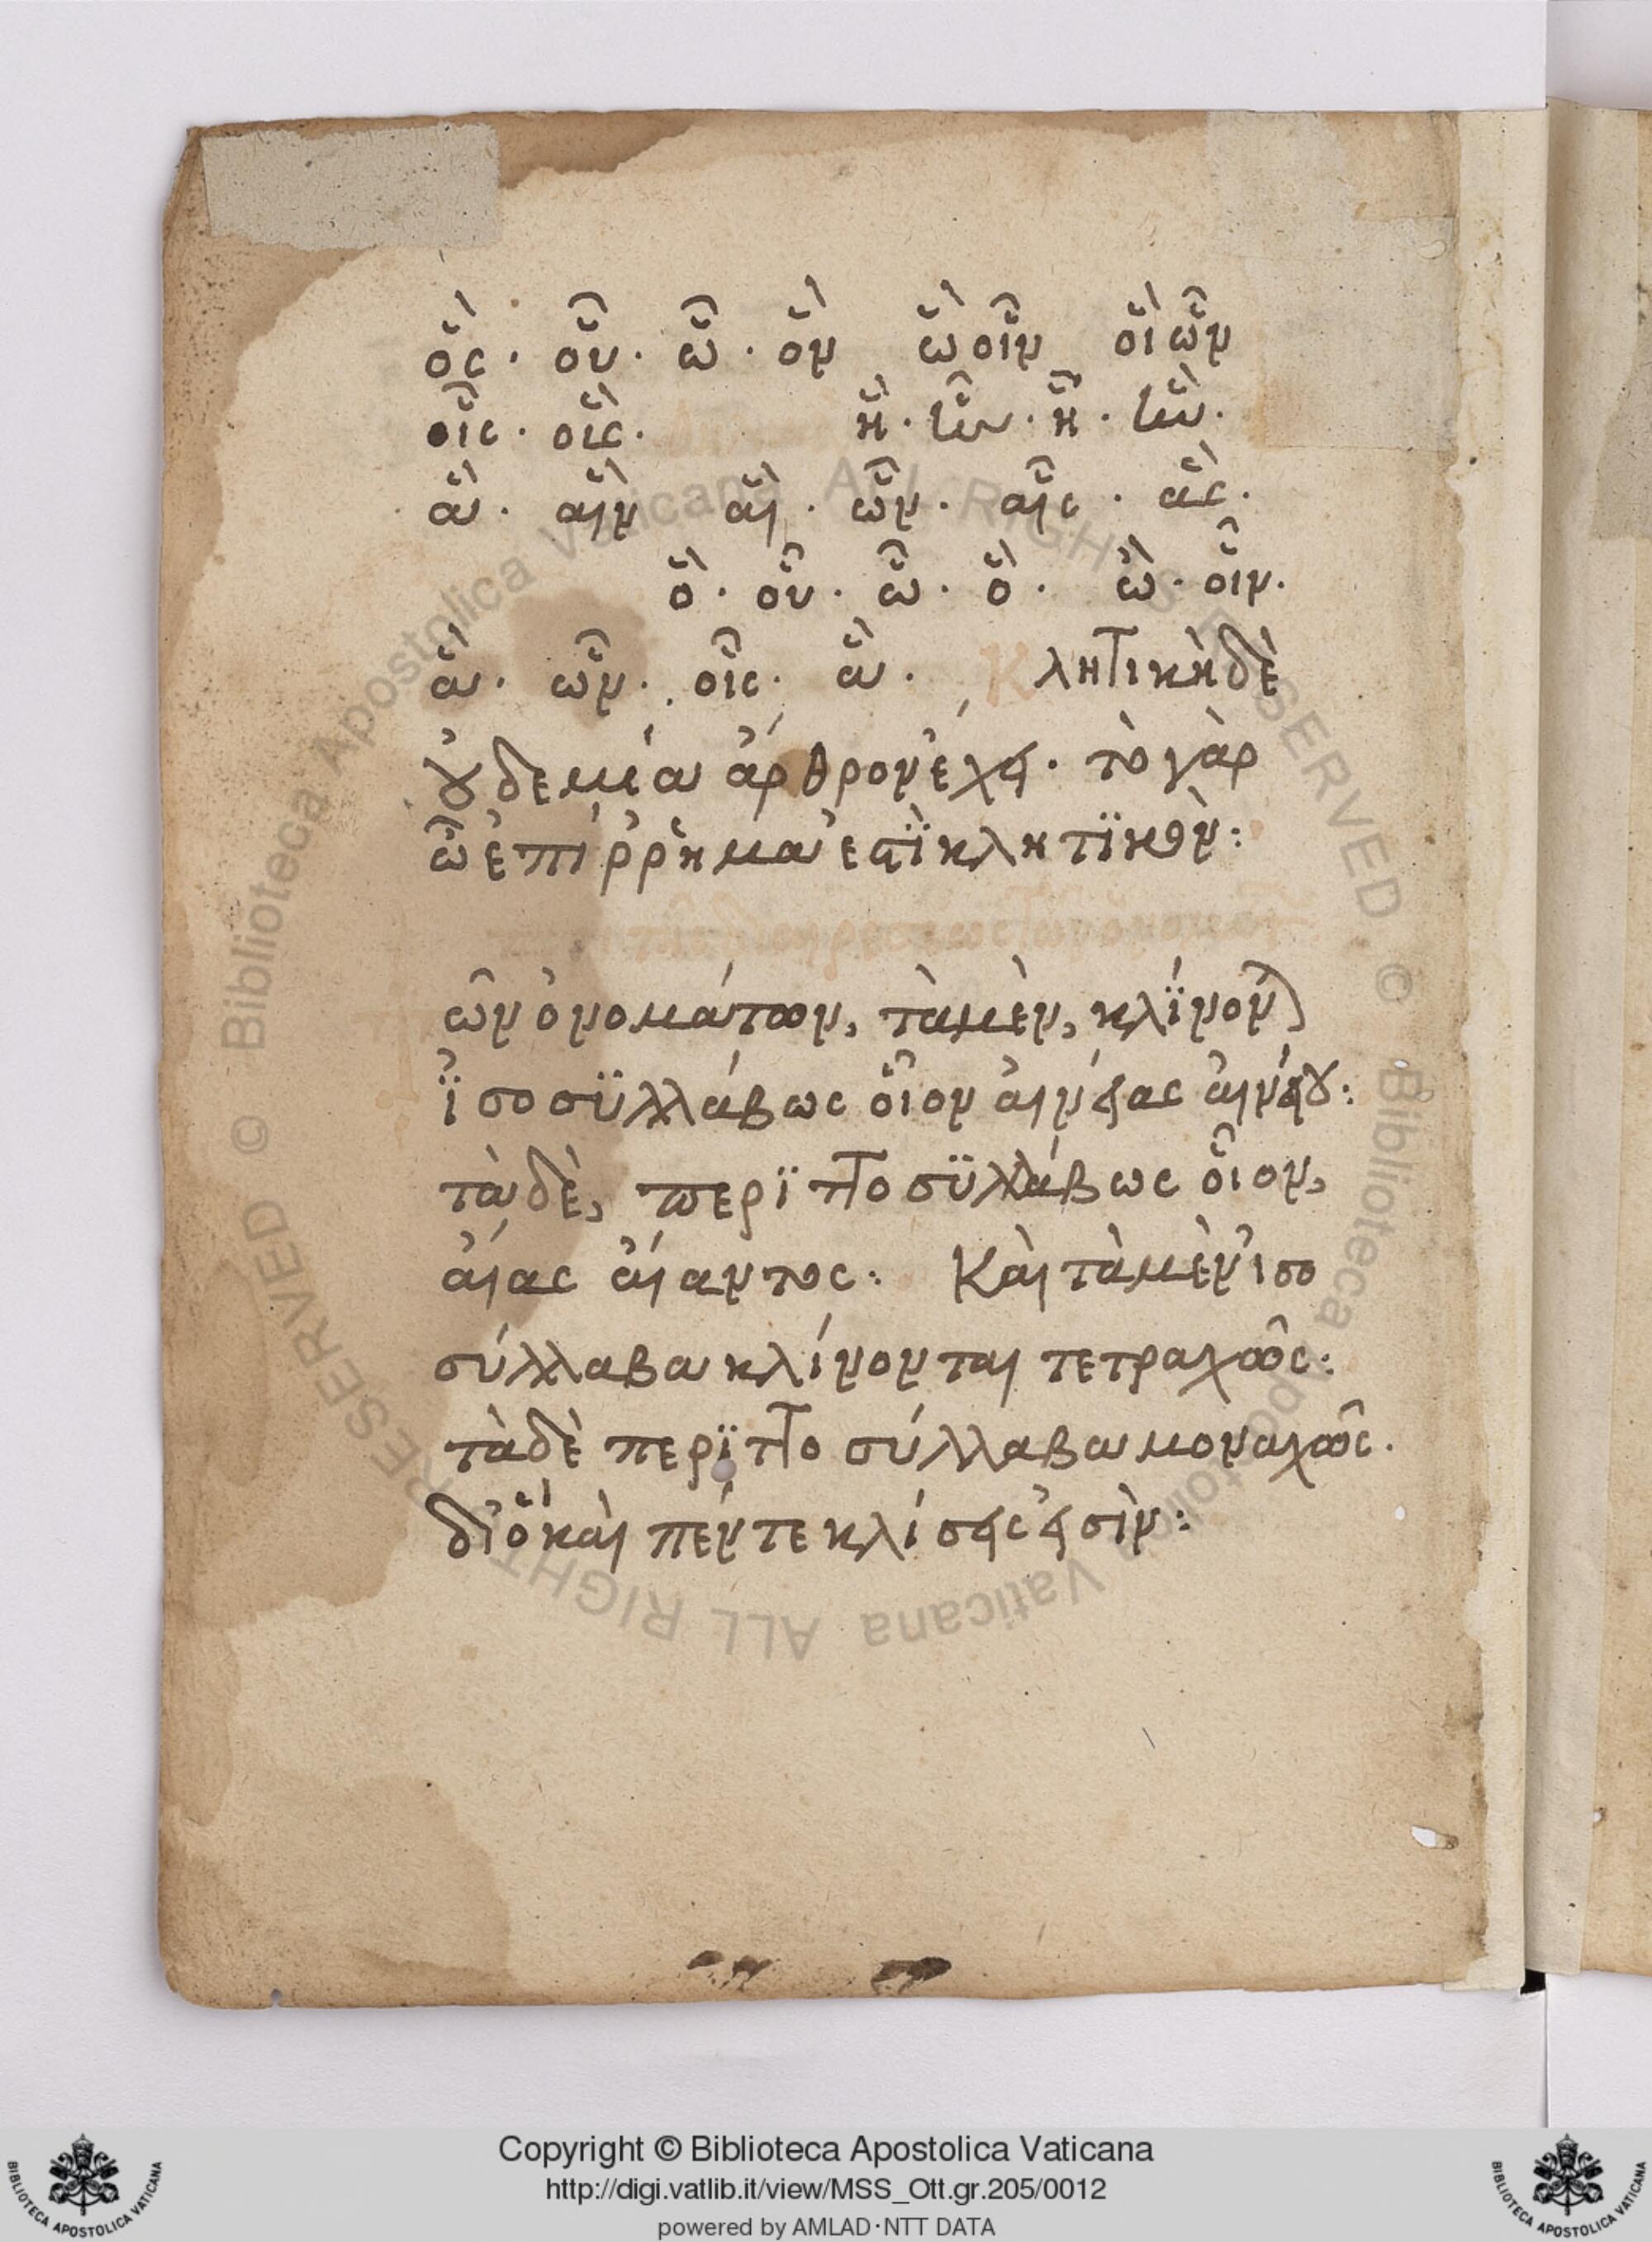 ὅς · οὗ · ᾧ · ὅν ὥ οἷν οἵ ὧν
οἷς · οὕς · ἥ · ἧς · ᾗ · ἥν ·
ἅ · αἷν αἵ · ὧν · αἷς · ἅς ·
ὅ · οὗ · ᾧ · ὅ · ὥ · οἷν ·
ἅ · ὧν · οἷς · ἅ · Κλητικὴ δὲ
οὐδεμία ἄρθρον ἔχει · τὸ γὰρ
ὦ ἐπίρρημα ἐστὶ κλητικόν :
ῶν ὀνομάτων, τὰ μὲν, κλίνονται
ϊσοσϋλλάβως οἷον αἰνείας αἰνείου :
τὰ δὲ, περϊττοσϋλλάβως οἷον,
αἴας αἴαντος : Καὶ τὰ μὲν ἰσο
σύλλαβα κλίνονται τετραχῶς :
τὰ δὲ περϊττοσύλλαβα μοναχῶς .
διὸ καὶ πέντε κλίσεις εἰσὶν :
Copyright © Biblioteca Apostolica Vaticana
http://digi.vatlib.it/view/MSS_Ott.gr.205/0012
powered by AMLAD·NTT DATA
BIBLIOTECA APOSTOLICA VATICANA
BIBLIOTECA APOSTOLICA VATICANA
© Biblioteca Apostolica Vaticana ALL RIGHTS RESERVED © Biblioteca Apostolica Vaticana ALL RIGHTS RESERVED